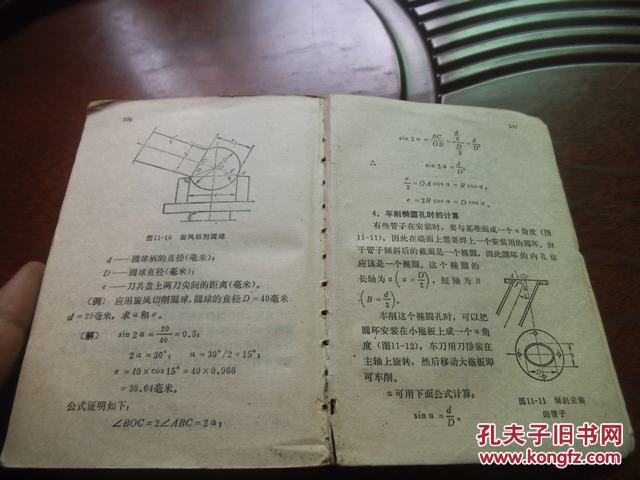 336
图11-10 旋风切削圆球
d——圆球柄的直径(毫米);
D——圆球直径(毫米);
e——刀具盘上两刀尖间的距离(毫米)。
〔例〕 应用旋风切削圆球,圆球的直径D=40毫米
d=20毫米,求α和e。
〔解〕 sin 2α=20/40=0.5;
2α=30°; α=30°/2=15°;
e=40×cos15°=40×0.966
=38.64毫米。
公式证明如下:
∠BOC=2∠ABC=2α;
337
sin2α=BC/OB=(d/2)/(D/2)=d/D,
∴ sin2α=d/D,
e/2=OA cosα=R cosα,
e=2R cosα=D cosα。
4. 车削椭圆孔时的计算
有些管子在安装时,要与基准面成一个α角度(图
11-11),因此在端面上需要焊上一个安装用的圆环。由
于管子倾斜后的截面是一个椭圆,因此圆环的内孔也
应该是一个椭圆。这个椭圆的
长轴为a(a=D/2),短轴为B
(B=d/2)。
车削这个椭圆孔时,可以把
圆环安装在小拖板上成一个α角
度(图11-12),车刀用刀排装在
主轴上旋转,然后移动大拖板即
可车削。
α可用下面公式计算:
sinα=d/D。
图11-11 倾斜安装
的管子
孔夫子旧书网
www.kongfz.com